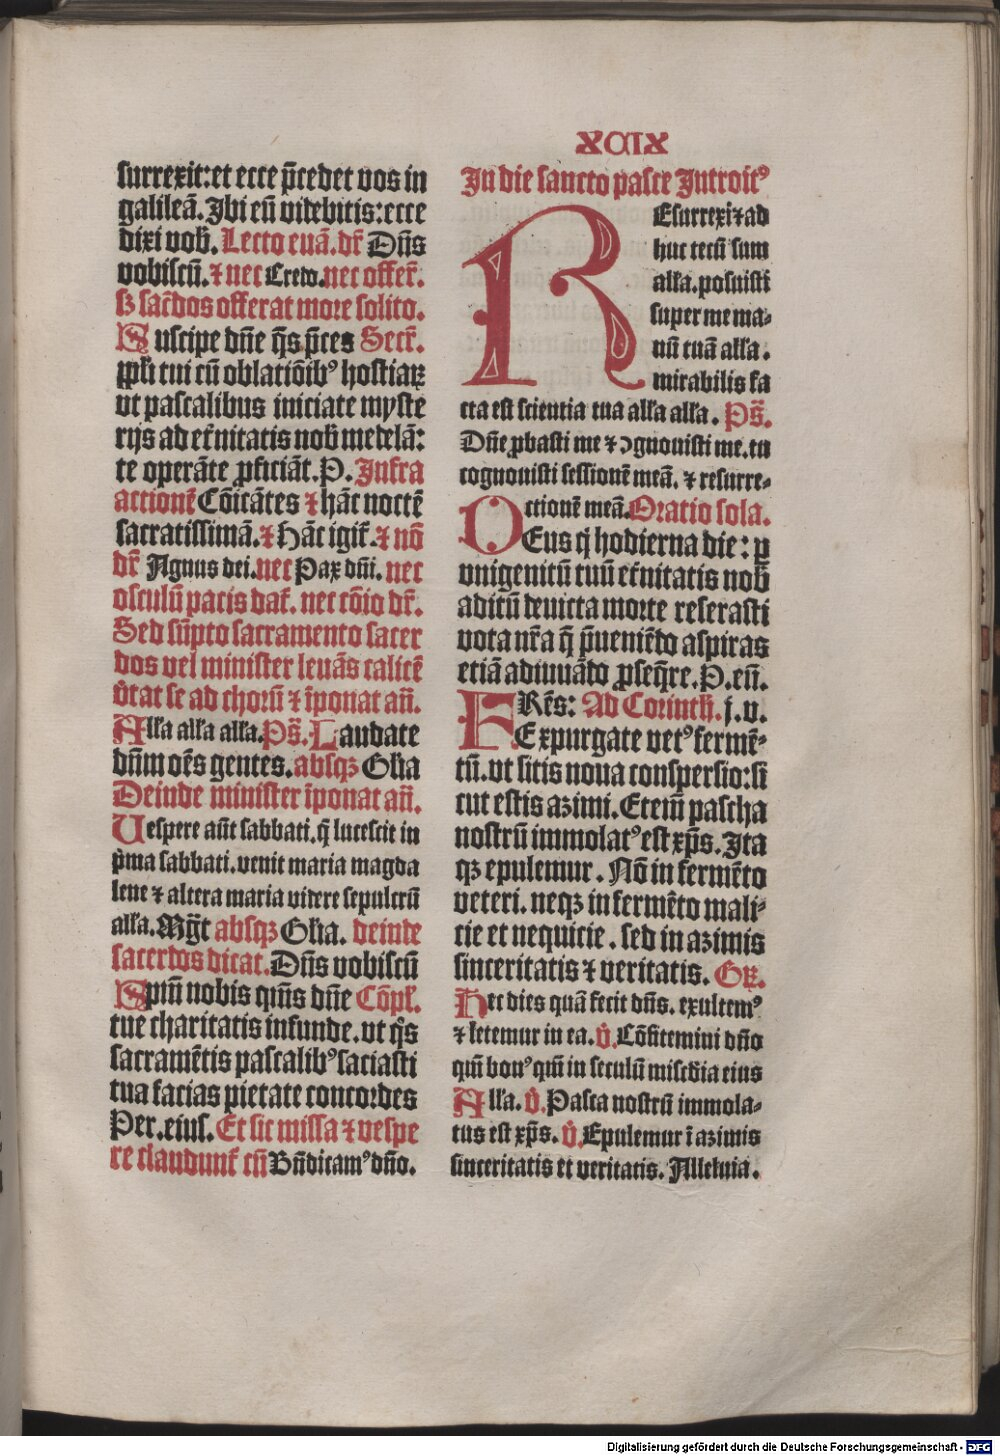 XCIX
surrexit: et ecce p̄cedet vos in
galileā. Ibi eū videbitis: ecce
dixi vob̄. Lecto euā. dr̄ Dn̄s
vobiscū. ⁊ nec Credo. nec offer̄.
sꝫ sac̄dos offerat more solito.
Suscipe dn̄e q̄s p̄ces Secr̄.
pp̄li tui cū oblatiōibꝰ hostiaꝝ
vt pascalibus iniciate myste
rijs ad et̄nitatis nob̄ medelā:
te operāte ꝓficiāt. P. Infra
actionē Cōicātes ⁊ hāc noctē
sacratissimā. ⁊ Hāc igit̄. ⁊ nō
dr̄ Agnus dei. nec Pax dn̄i. nec
osculū pacis dat̄. nec cōio dr̄.
Sed sūpto sacramento sacer
dos vel minister leuās calicē
v̄tat se ad chorū ⁊ īponat an̄.
All̄a all̄a all̄a. Ps̄. Laudate
dn̄m oēs gentes. absqꝫ Glīa
Deinde minister īponat an̄.
Uespere aūt sabbati. q̄ lucescit in
p̄ma sabbati. venit maria magda
lene ⁊ altera maria videre sepulcrū
all̄a. Mḡt absqꝫ Glīa. deinde
sacerdos dicat. Dn̄s vobiscū
Spirm̄ nobis qm̄s dn̄e Cōpl̄.
tue charitatis infunde. vt q̄s
sacramētis pascalibꝰ saciasti
tua facias pietate concordes
Per. eius. Et sic missa ⁊ vespe
re claudunt̄ cū Bn̄dicamꝰ dn̄o.
In die sancto pasce Introitꝰ
Resurrexi ⁊ ad
huc tecū sum
all̄a. posuisti
super me ma-
nū tuā all̄a.
mirabilis fa
cta est scientia tua all̄a all̄a. Ps̄.
Dn̄e ꝓbasti me ⁊ ↄgnouisti me. tu
cognouisti sessionē meā. ⁊ resurre-
ctionē meā. Oratio sola.
DEus q̄ hodierna die: ꝑ
vnigenitū tuū et̄nitatis nob̄
aditū deuicta morte reserasti
vota nr̄a q̄ p̄ueniēdo aspiras
etiā adiuuādo ꝓseq̄re. P. eū.
FRēs: Ad Corinth̄. j. v.
Expurgate vetꝰ fermē-
tū. vt sitis noua conspersio: si
cut estis azimi. Etem̄ pascha
nostrū immolatꝰ est xp̄s. Ita
qꝫ epulemur. Nō in fermēto
veteri. neqꝫ in fermēto mali-
cie et nequicie. sed in azimis
sinceritatis ⁊ veritatis. Gꝝ.
Hec dies quā fecit dn̄s. exultemꝰ
⁊ letemur in ea. V̄. Cōfitemini dn̄o
qm̄ bonꝰ qm̄ in seculū misc̄dia eius
All̄a. V̄. Pasca nostrū immola-
tus est xp̄s. V̄. Epulemur ī azimis
sinceritatis et veritatis. Alleluia.
Digitalisierung gefördert durch die Deutsche Forschungsgemeinschaft - DFG